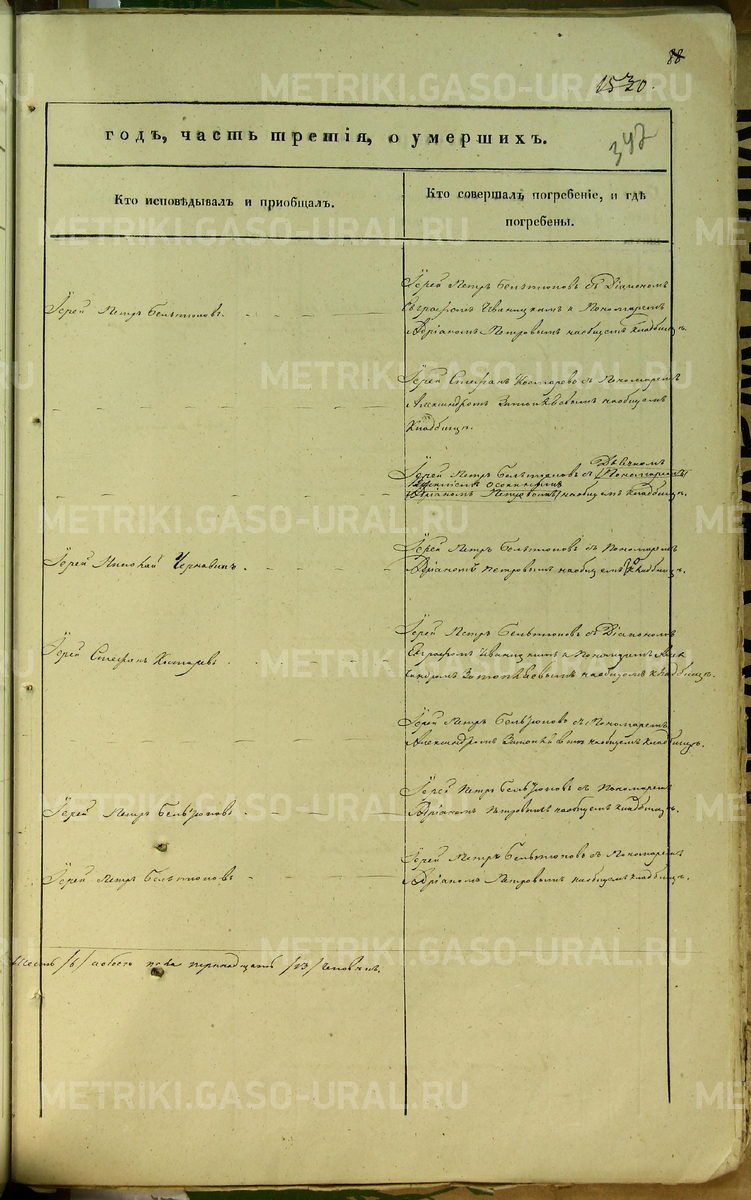 88
1530.
347
годъ, часть третія, о умершихъ.
Кто исповѣдывалъ и пріобщалъ.
Кто совершалъ погребеніе, и гдѣ
погребены.
Іерей Петръ Бельтюковъ съ Діакономъ
Евграфомъ Иваницкимъ и Пономаремъ
Адріаномъ Петровымъ на общемъ кладбищѣ.
Іерей Петръ Бельтюковъ.
Іерей Стефанъ Костарево съ Пономаремъ
Александромъ наобщемъ
Кладбищѣ.
Іерей Петръ Бельтюковъ съ Пономаремъ
Адріаномъ Петровымъ наобщемъ Кладбищѣ.
Іерей Николай Чернавинъ.
Іерей Петръ Бельтюковъ съ Пономаремъ
Адріаномъ Петровымъ наобщемъ Кладбищѣ.
Іерей Стефанъ Костаревъ.
Іерей Петръ Бельтюковъ съ Діакономъ
Евграфомъ Иваницкимъ и Пономаремъ Алек
сандромъ наобщемъ кладбищѣ.
Іерей Петръ Бельтюковъ съ Пономаремъ
Александромъ наобщемъ кладбищѣ.
Іерей Петръ Бельтюковъ
Іерей Петръ Бельтюковъ съ Пономаремъ
Адріаномъ Петровымъ наобщемъ кладбищѣ.
Іерей Петръ Бельтюковъ
Іерей Петръ Бельтюковъ съ Пономаремъ
Адріаномъ Петровымъ наобщемъ кладбищѣ.
шесть /6/ а обоего пола тринадцать /13/ человѣкъ.
METRIKI.GASO-URAL.RU